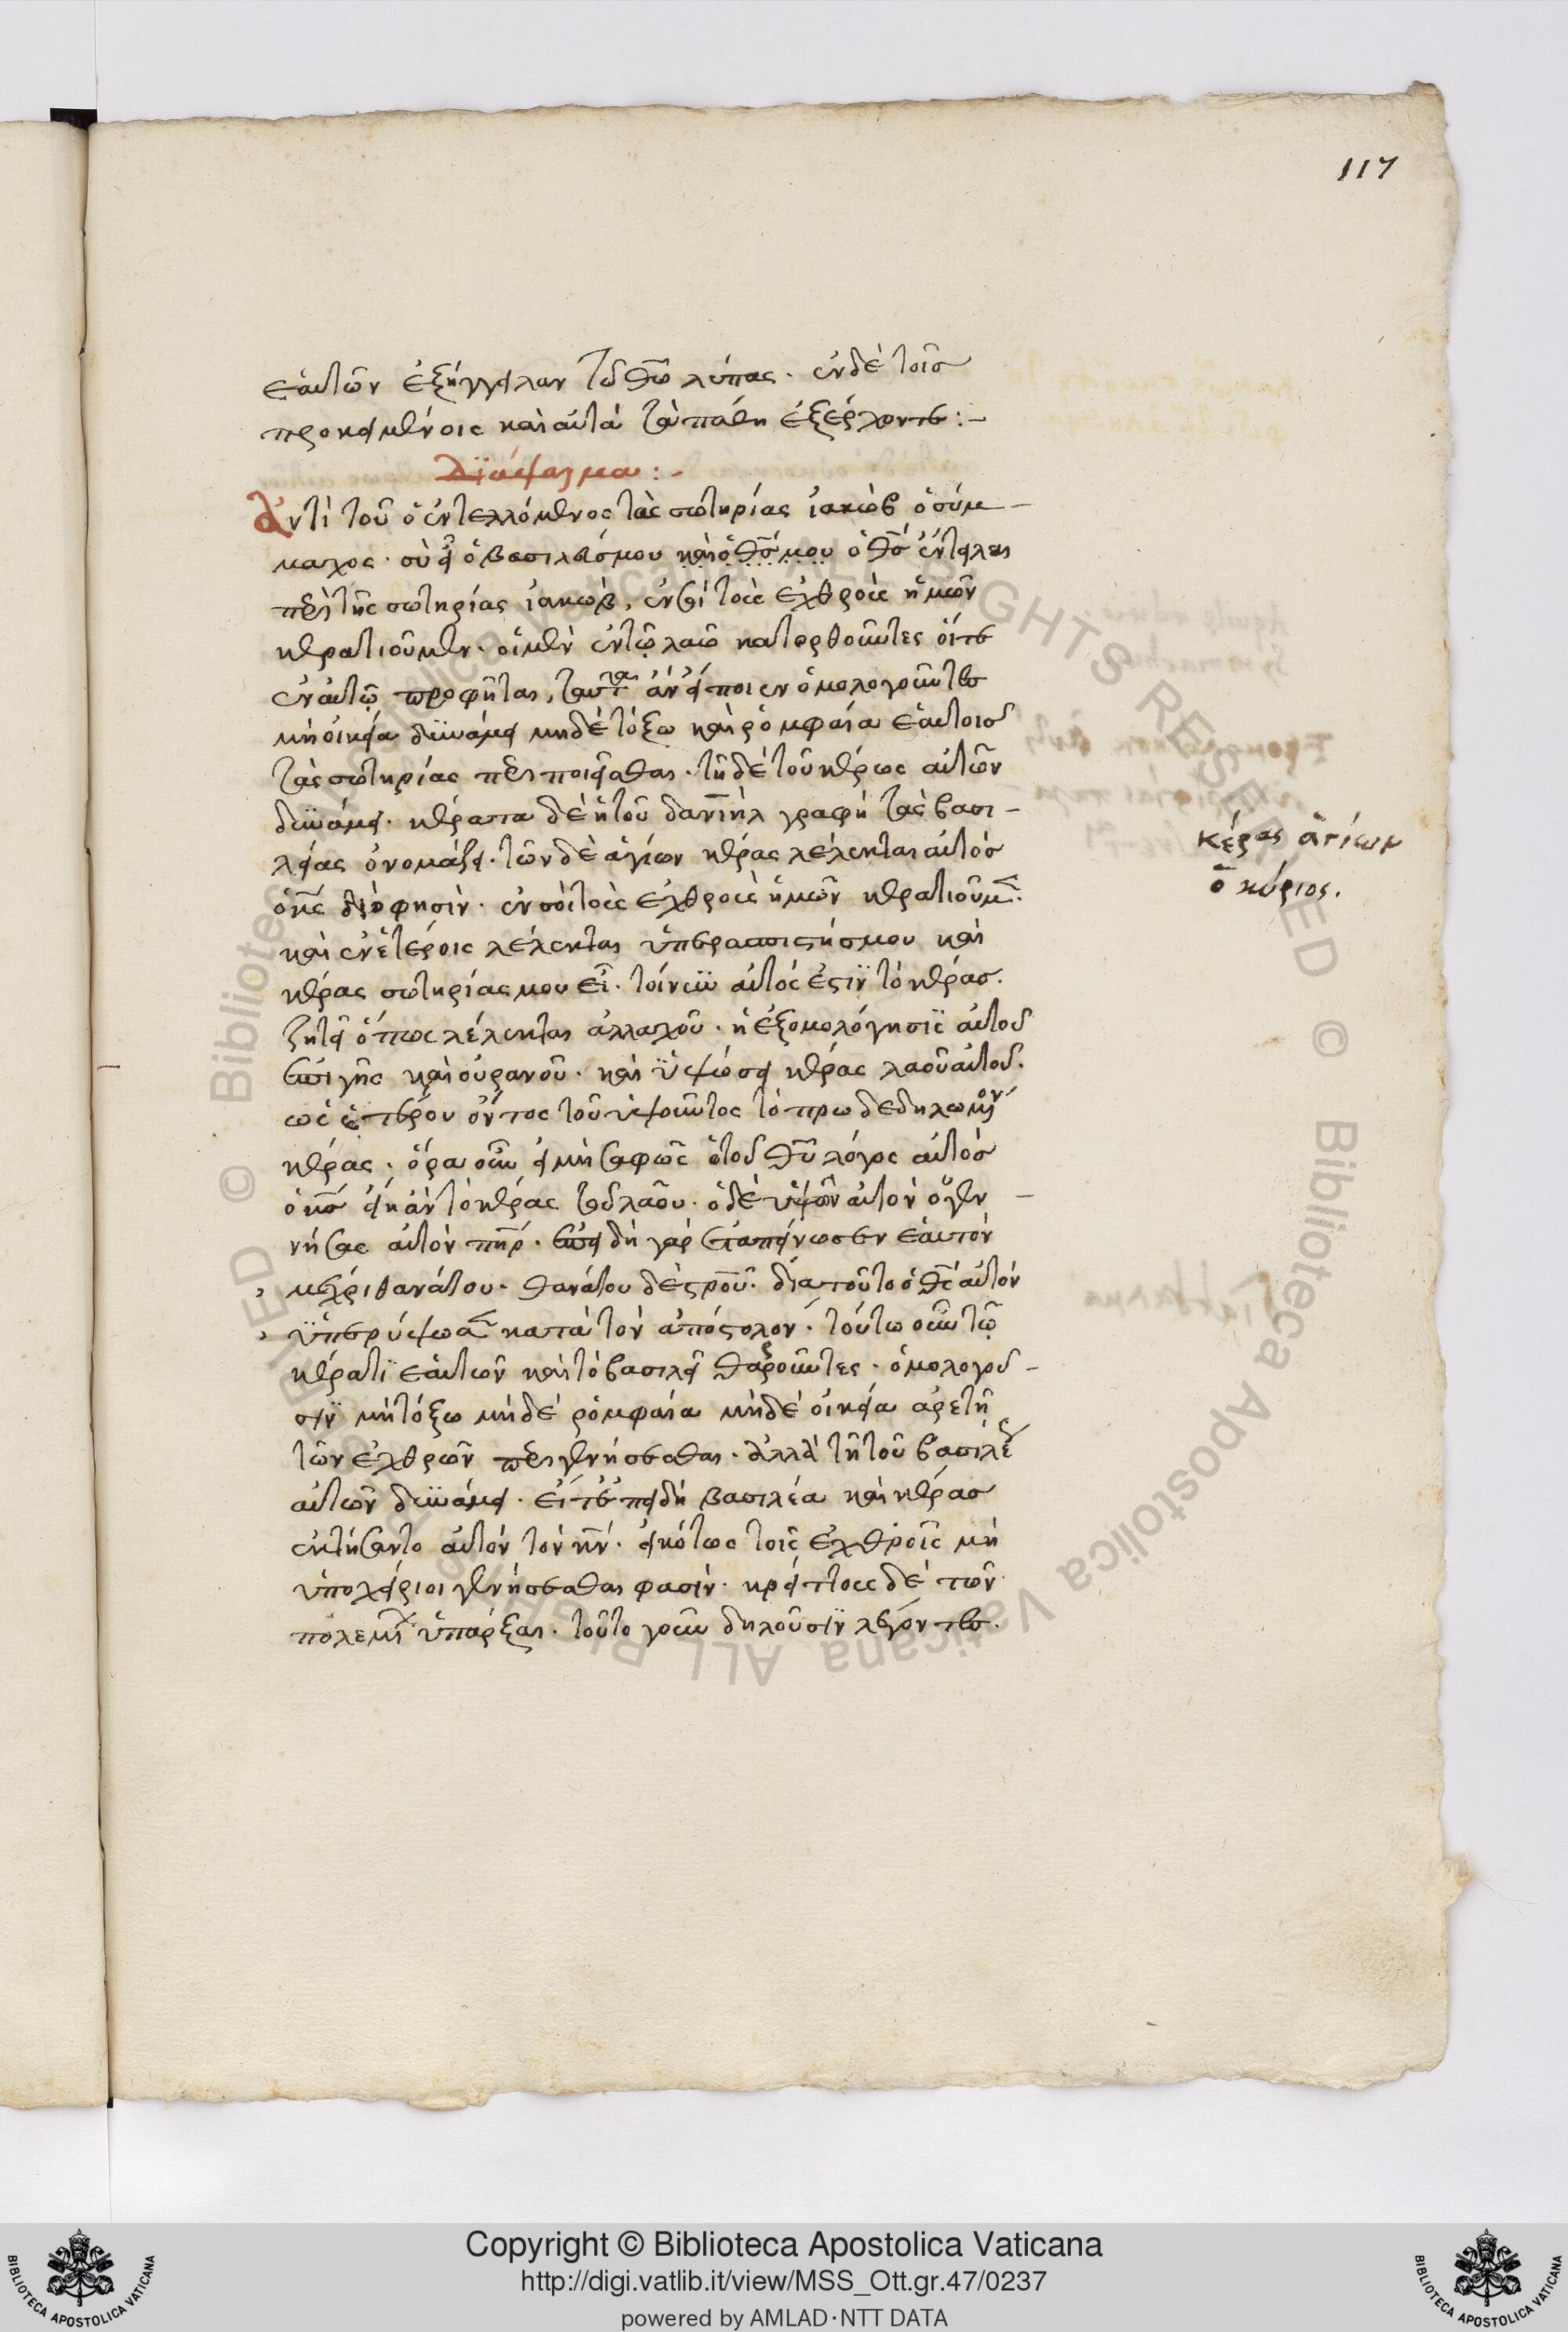 117
ἑαυτῶν ἐξήγγειλαν τῶ θω λύπας. ἐν δὲ τοῖσ
προκειμένοις καὶ αὐτὰ τὰ πάθη ἐξέρχονται:-
Διάψαλμα:-
Ἀντὶ τοῦ ὁ ἐντελλόμενος τὰς σωτηρίας ἰακὼβ ὁ σύμ-
μαχος. σὺ εἶ ὁ βασιλεύσ μου καὶ ὁ θσ μου ὁ θσ ἔντειλαι
περὶ τῆς σωτηρίας ἰακώβ, ἐν σοὶ τοὺς ἐχθροὺς ἡμῶν
κερατιοῦμεν. οἱ μὲν ἐν τῶ λαῶ κατορθοῦντες οἵ τε
ἐν αὐτῶ προφῆται, ταῦτα ἂν εἴποιεν ὁμολογοῦντεσ
μὴ οἰκεία δυνάμει μηδὲ τόξω καὶ ῥομφαία ἑαυτοῖσ
τὰς σωτηρίας περιποιεῖσθαι. τῆ δὲ τοῦ κέρως αὐτῶν
δυνάμει. κέρατα δὲ ἡ τοῦ δανιὴλ γραφὴ τὰς βασι-
λείας ὀνομάζει. τῶν δὲ ἁγίων κέρας λέλεκται αὐτόσ
ὁ κς διό φησιν. ἐν σοὶ τοὺς ἐχθροὺς ἡμῶν κερατιοῦμεν.
καὶ ἐν ἑτέροις λέλεκται ὑπερασπιστήσ μου καὶ
κέρας σωτηρίας μου εἶ. τοίνυν αὐτός ἐστιν τὸ κέρασ.
ζήτει ὅπως λέλεκται ἀλλαχοῦ. ἡ ἐξομολόγησις αὐτοῦ
ἐπὶ γῆς καὶ οὐρανοῦ. καὶ ὑψώσει κέρας λαοῦ αὐτοῦ.
ὡς ἑτέρου ὄντος τοῦ ὑψοῦντος τὸ προδεδηλωμένον
κέρας. ὅρα οὖν εἰ μὴ σαφῶς ὁ τοῦ θυ λόγος αὐτόσ
ὁ κσ εἴη ἂν τὸ κέρας τοῦ λαοῦ. ὁ δὲ ὑψῶν αὐτὸν ὁ γεν-
νήσας αὐτὸν πηρ. ἐπειδὴ γὰρ ἐταπείνωσεν ἑαυτὸν
μέχρι θανάτου. θανάτου δὲ στροῦ. διὰ τοῦτο ὁ θς αὐτὸν
ὑπερύψωσεν κατὰ τὸν ἀπόστολον. τούτω οὖν τῶ
κέρατι ἑαυτῶν καὶ τὸ βασιλεῖ θαρσοῦντες. ὁμολογοῦ-
σιν μὴ τόξω μὴ δὲ ῥομφαία μὴ δὲ οἰκεία ἀρετῆ
τῶν ἐχθρῶν περιγενήσεσθαι. ἀλλὰ τῆ τοῦ βασιλέως
αὐτῶν δυνάμει. εἶτ' ἐπειδὴ βασιλέα καὶ κέρασ
ἐκτήσαντο αὐτὸν τὸν κν. εἰκότως τοῖς ἐχθροῖς μὴ
ὑποχείριοι γενήσεσθαι φασίν. κρείττους δὲ τῶν
πολεμίων ὑπάρξαι. τοῦτο γοῦν δηλοῦσιν λέγοντεσ.
κέρας ἁγίων
ὁ κύριος.
Copyright © Biblioteca Apostolica Vaticana
http://digi.vatlib.it/view/MSS_Ott.gr.47/0237
powered by AMLAD·NTT DATA